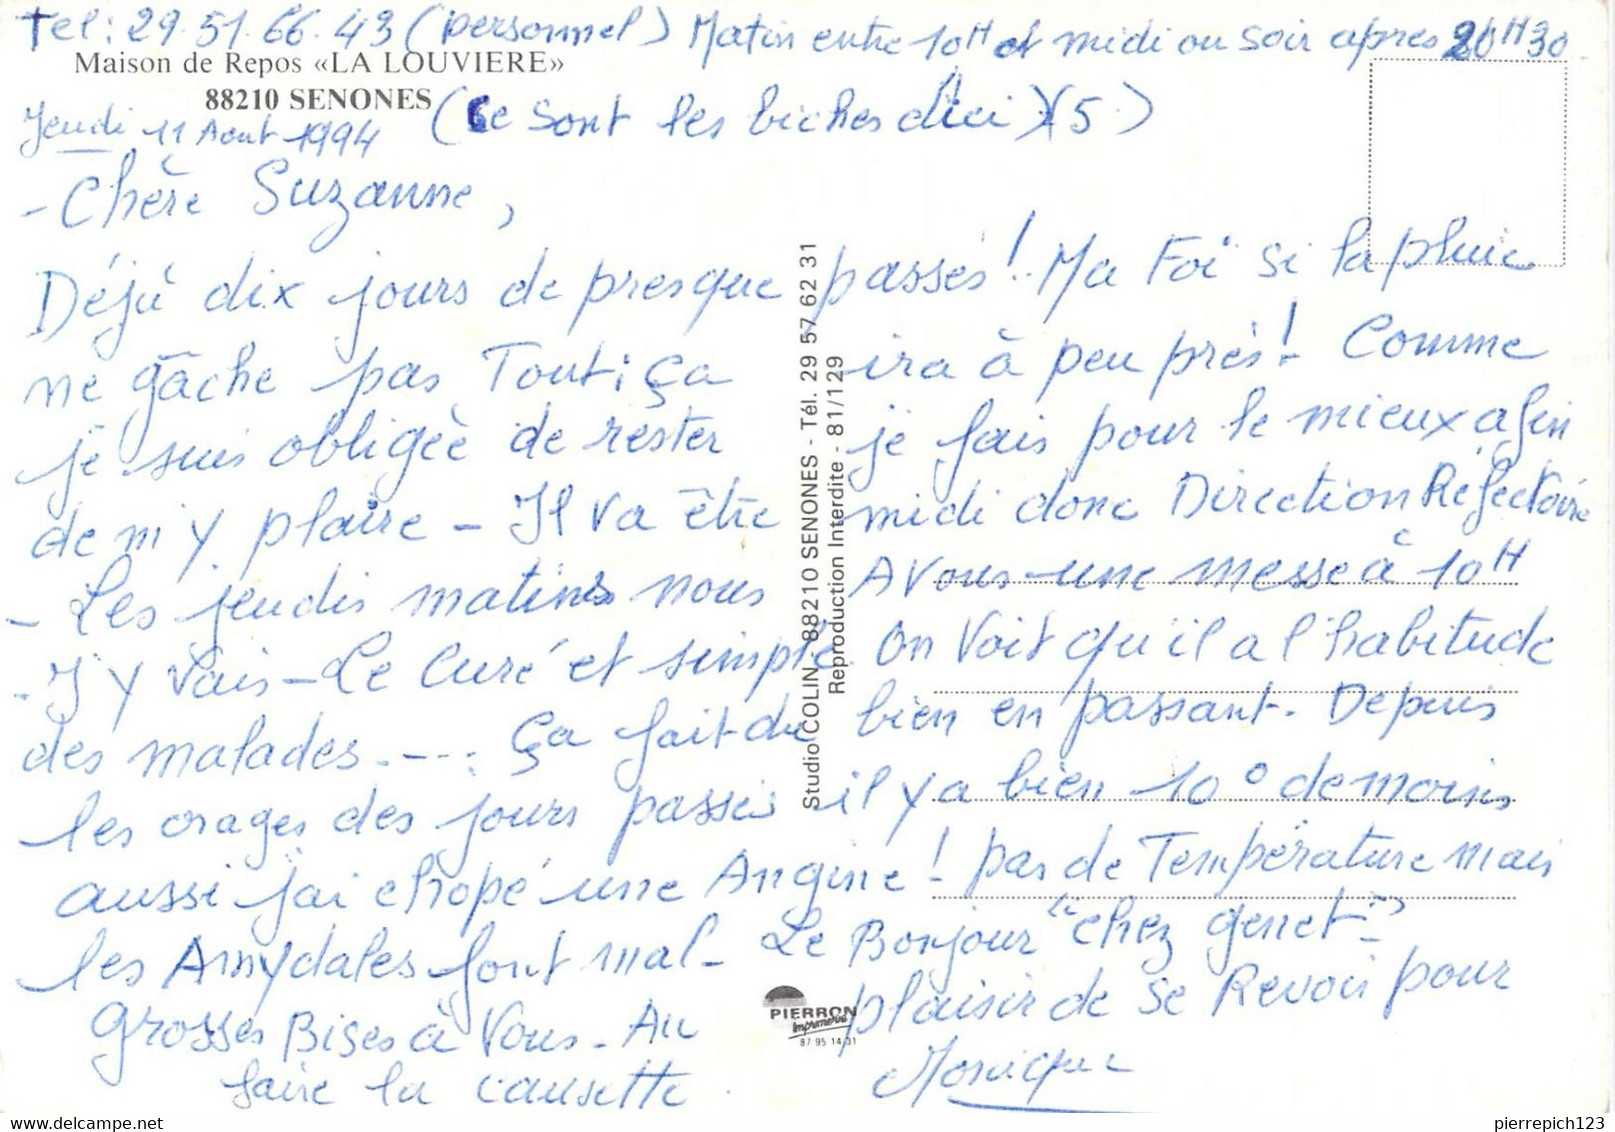 Tel: 29.51.66.43 (personnel) Matin entre 10H et midi ou soir apres 20H30
Maison de Repos «LA LOUVIERE»
88210 SENONES
Jeudi 11 Aout 1994 (Ce sont les biches d'ici) (5)
- Chère Suzanne,
Déjà dix jours de presque passés! Ma Foi si la pluie
ne gâche pas Tout; ça ira à peu près! Comme
je suis obligée de rester je fais pour le mieux afin
de m'y plaire - Il va être midi donc Direction Réfectoire
- Les jeudis matins nous Avons une messe à 10H
- J'y vais - Le Curé et simple. On voit qu'il a l'habitude
des malades.---. ça fait du bien en passant. Depuis
les orages des jours passés il y a bien 10° de moins
aussi j'ai chopé une Angine! pas de Température mais
les Amydales font mal - Le Bonjour "chez genet"
Grosses Bises à Vous. Au plaisir de se Revoir pour
faire la causette. Monique
Studio COLIN 88210 SENONES - Tél. 29 57 62 31
Reproduction Interdite - 81/129
PIERRON
Imprimerie
87 95 14 31
pierrepich123